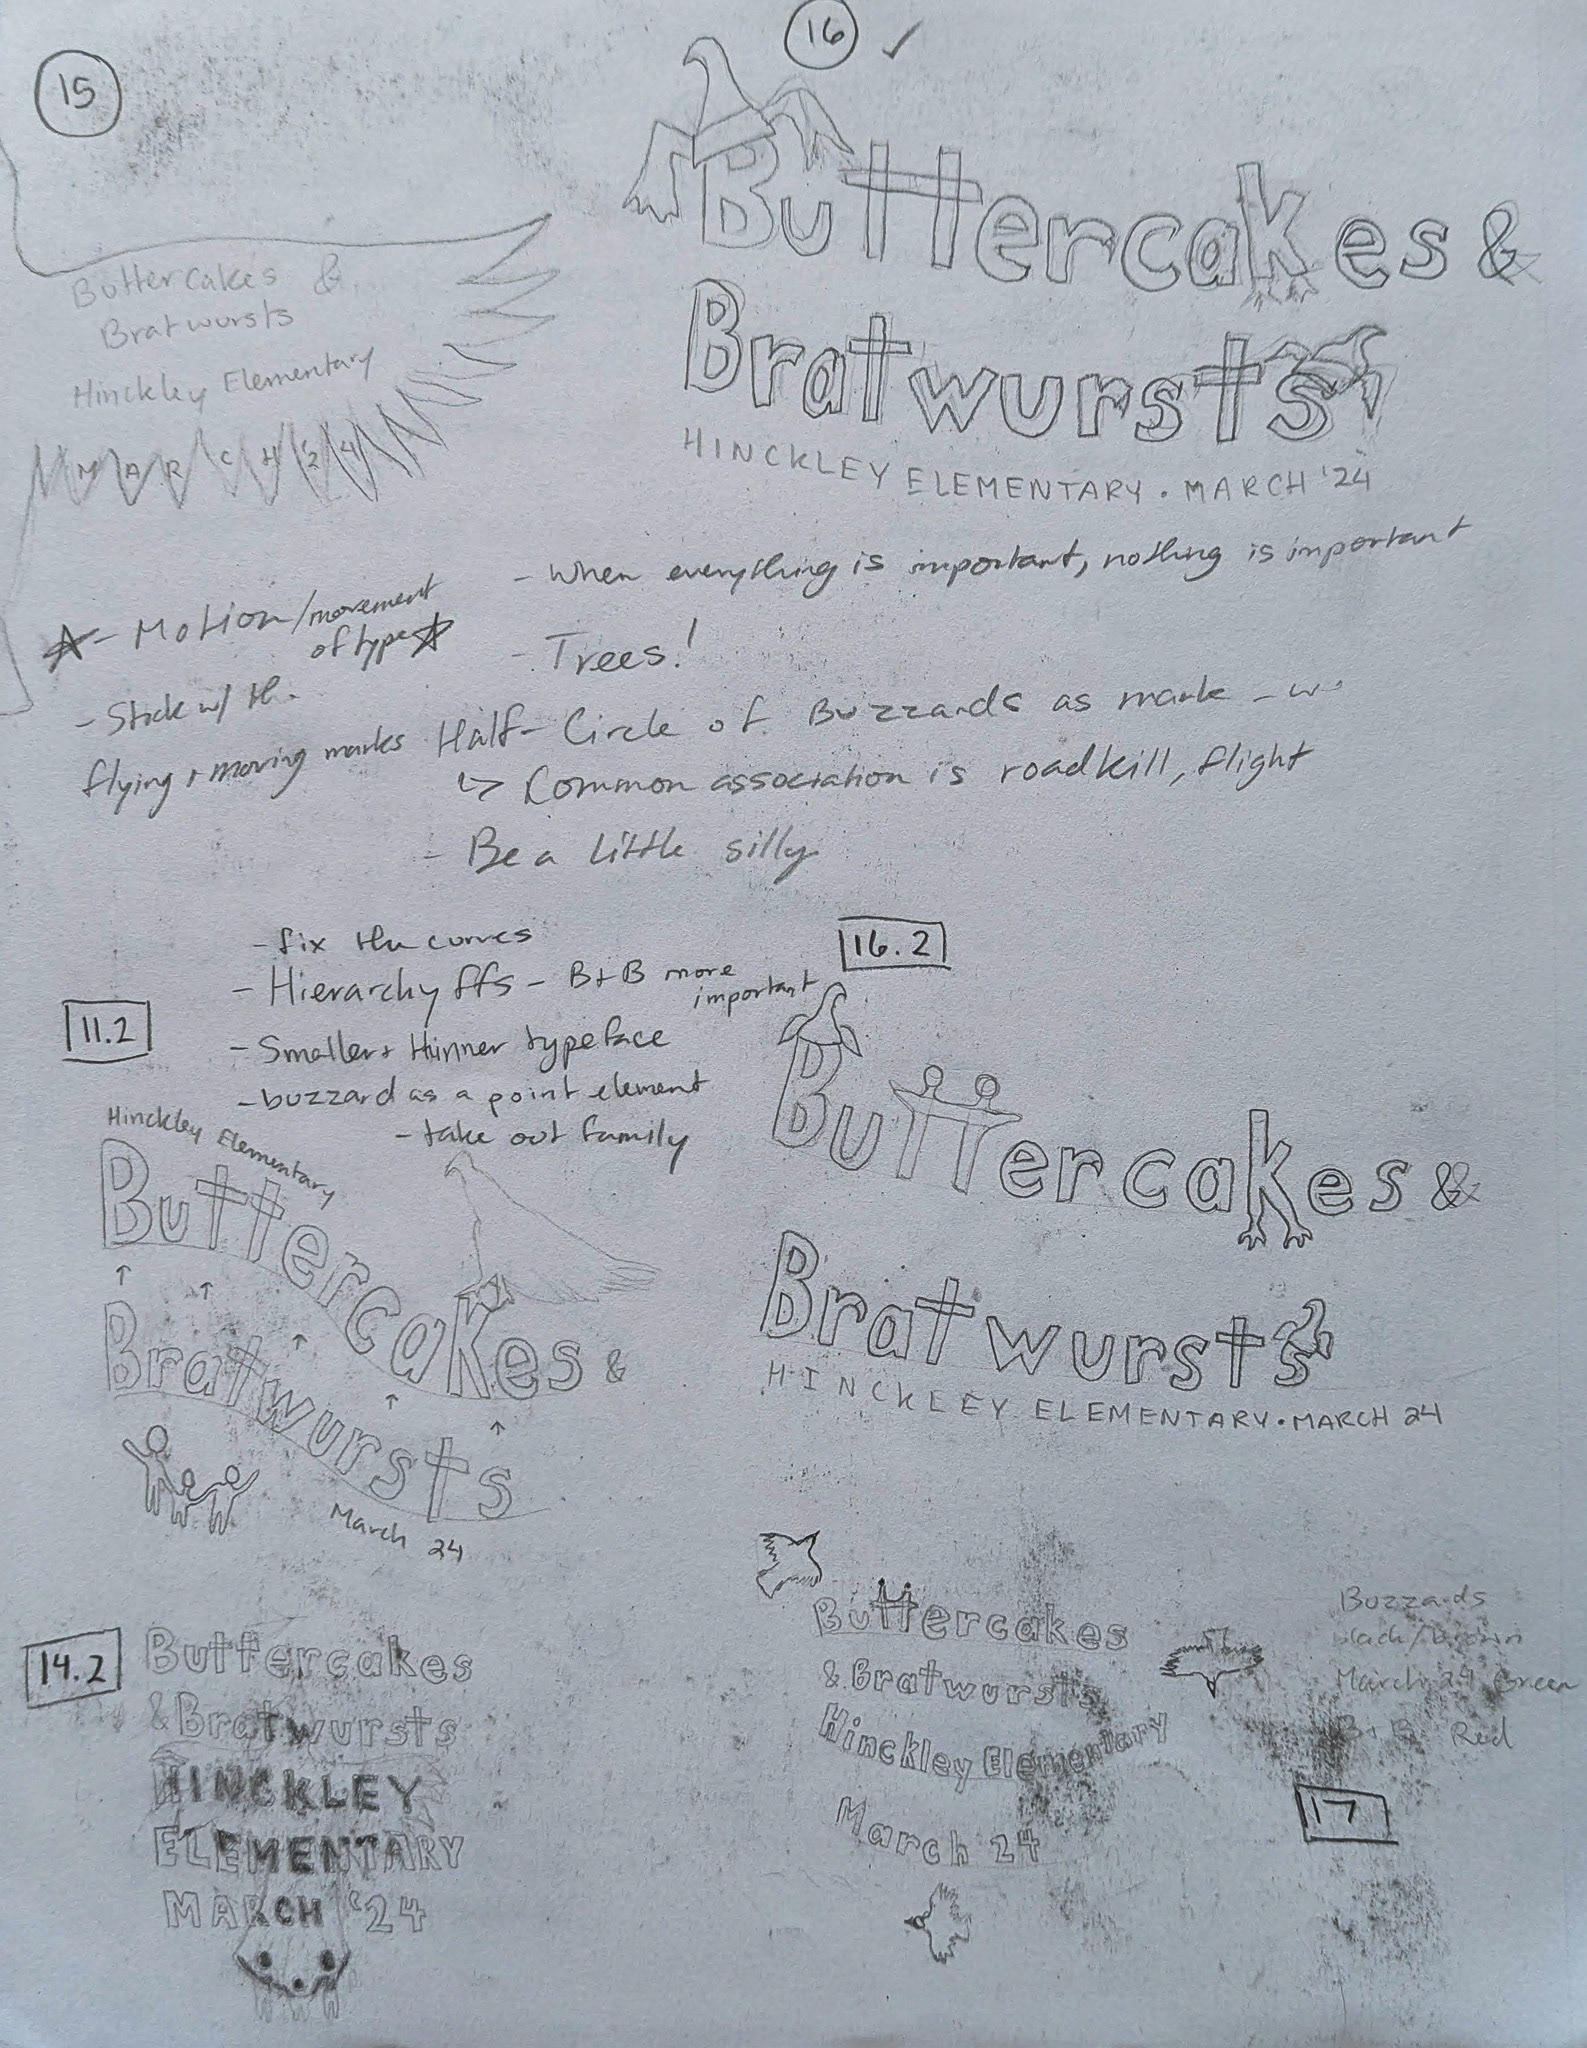 15
Buttercakes &
Bratwursts
Hinckley Elementary
MARCH '24
16
Buttercakes &
Bratwursts
HINCKLEY ELEMENTARY . MARCH '24
- When everything is important, nothing is important
- Motion/movement
of type
- Trees!
- Stick w/ th.
flying + moving marks
Half-Circle of Buzzards as mark -
↳ Common association is roadkill, flight
- Be a little silly
- fix the curves
- Hierarchy ffs - B+B more
important
- Smaller + thinner typeface
- buzzard as a point element
- take out family
11.2
Hinckley Elementary
Buttercakes &
Bratwursts
March 24
16.2
Buttercakes &
Bratwursts
HINCKLEY ELEMENTARY • MARCH 24
14.2
Buttercakes
& Bratwursts
HINCKLEY
ELEMENTARY
MARCH '24
Buttercakes
& Bratwursts
Hinckley Elementary
March 24
Buzzards
black/brown
March 24 Green
B+B Red
17